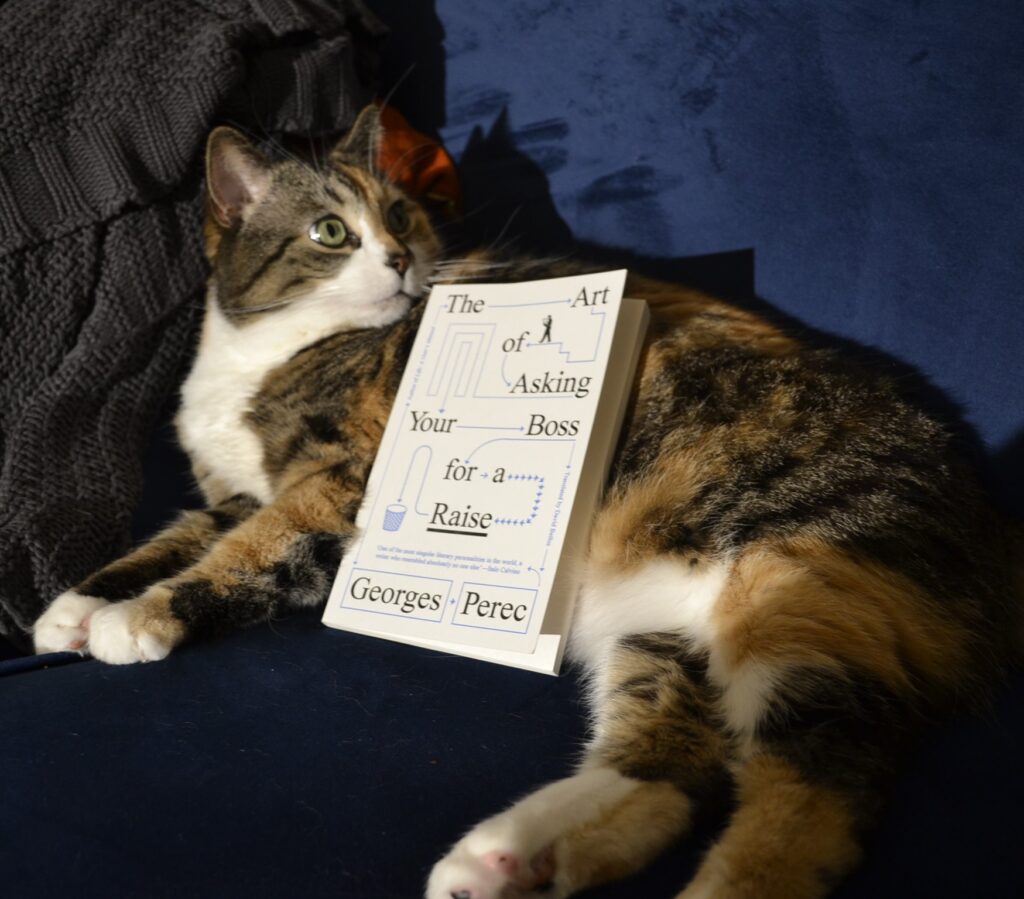 The Art
of
Asking
Your Boss
for a
Raise
"One of the most singular literary personalities in the world, a
writer who resembled absolutely no one else" —Italo Calvino
Georges Perec
Translated by David Bellos